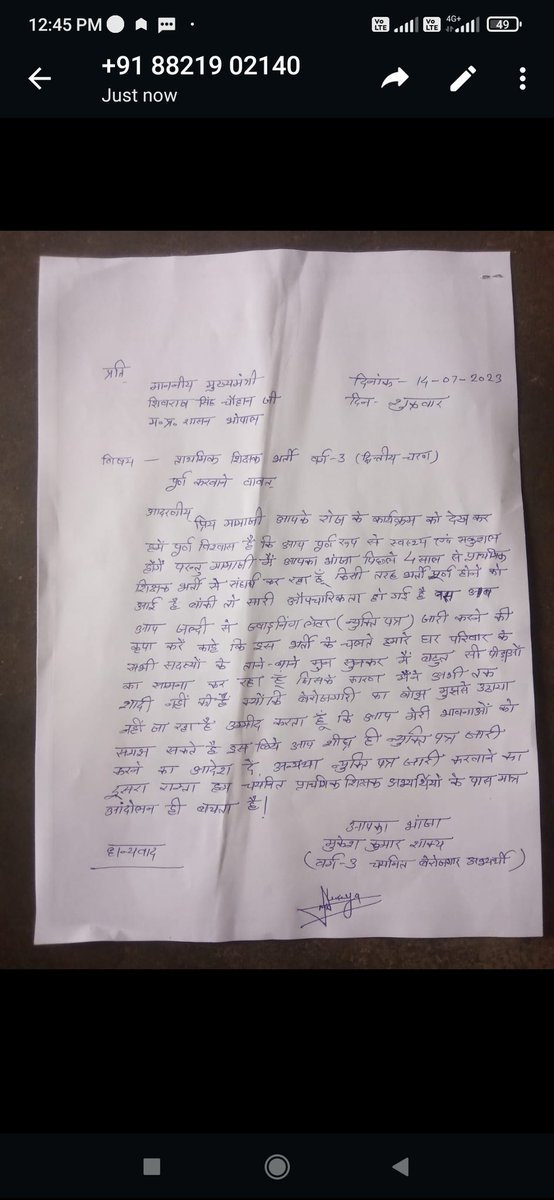 12:45 PM
Vo LTE Vo LTE 4G+ 49
+91 88219 02140
Just now
प्रति,
माननीय मुख्यमंत्री
दिनांक - 14-07-2023
शिवराज सिंह चौहान जी
दिन - शुक्रवार
म०प्र० शासन भोपाल
विषय - प्राथमिक शिक्षक भर्ती वर्ग-3 (द्वितीय-चरण)
पूर्ण करवाने वावत्
आदरणीय
प्रिय मामाजी आपके रोज के कार्यक्रम को देख कर
हमें पूर्ण विश्वास है कि आप पूर्ण रूप से स्वस्थ्य एवं सकुशल
होंगें परन्तु मामाजी मैं आपका भांजा पिछले 4 साल से प्राथमिक
शिक्षक भर्ती से संघर्ष कर रहा हूँ किसी तरह भर्ती पूर्ण होने को
आई है बाँकी तो सारी औपचारिकता हो गई है बस अब
आप जल्दी से ज्वाइनिंग लेटर (नियुक्ति पत्र) जारी करने की
कृपा करें क्योंकि इस भर्ती के चलते हमारे घर परिवार के
सभी सदस्यों के ताने-बाने सुन सुनकर मैं बहुत सी पीड़ाओं
का सामना कर रहा हूँ जिसके कारण मैंने अभी तक
शादी नहीं की है क्यों कि बेरोजगारी का बोझ मुझसे उठाया
नहीं जा रहा है उम्मीद करता हूँ कि आप मेरी भावनाओं को
समझ सकते है इस लिये आप शीघ्र ही नियुक्ति पत्र जारी
करने का आदेश दें, अन्यथा नियुक्ति पत्र जारी करवाने का
दूसरा रास्ता हम चयनित प्राथमिक शिक्षक अभ्यर्थियों के पास मात्र
आंदोलन ही बचता है!
आपका भांजा
धन्यवाद
मुकेश कुमार शाक्य
(वर्ग-3 चयनित बेरोजगार अभ्यर्थी)